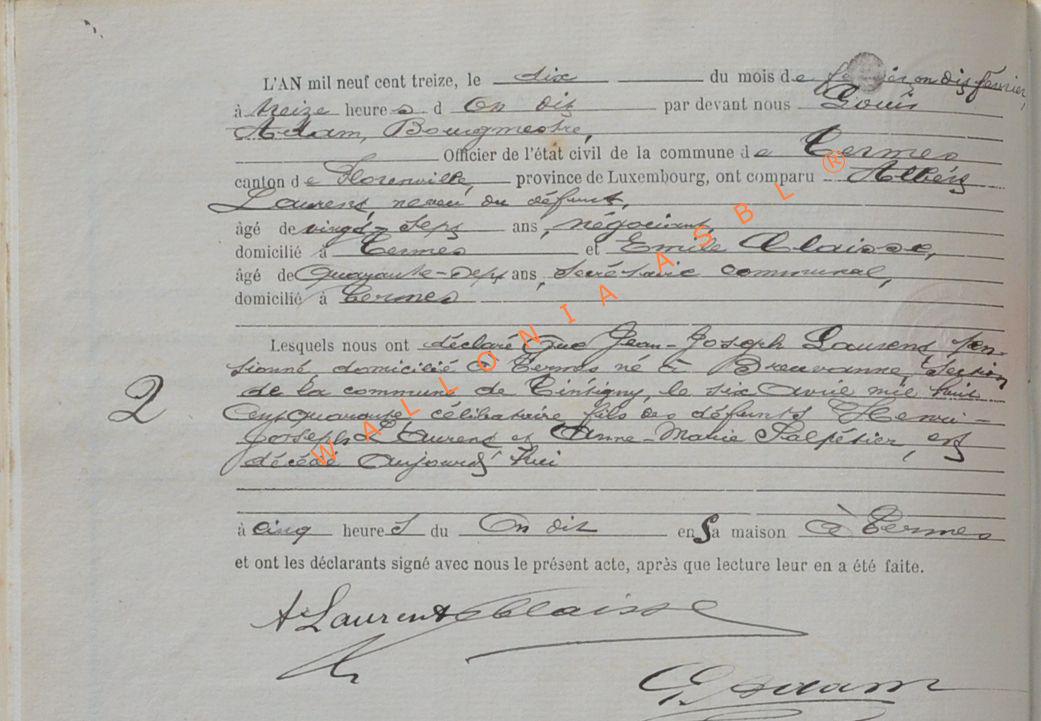 L'AN mil neuf cent treize, le dix du mois de février, on dix février,
à treize heures d On dit par devant nous Louis
Adam, Bourgmestre,
Officier de l'état civil de la commune de Termes
canton de Florenville, province de Luxembourg, ont comparu Albert
Laurent, neveu du défunt,
âgé de vingt-sept ans, négociant,
domicilié à Termes et Emile Claisse,
âgé de Quarante-sept ans, secrétaire communal,
domicilié à Termes
Lesquels nous ont déclaré Que Jean-Joseph Laurent, pen-
sionné, domicilié à Termes né à Breuvanne, section
de la commune de Tintigny, le six Avril mil huit
Cent quarante célibataire fils des défunts Henri-
2
Joseph Laurent et Anne-Marie Salpétier, est
décédé Aujourd'hui
à cinq heures du On dit en Sa maison à Termes
et ont les déclarants signé avec nous le présent acte, après que lecture leur en a été faite.
A Laurent Claisse
Adam
WALLONIA ASBL ®